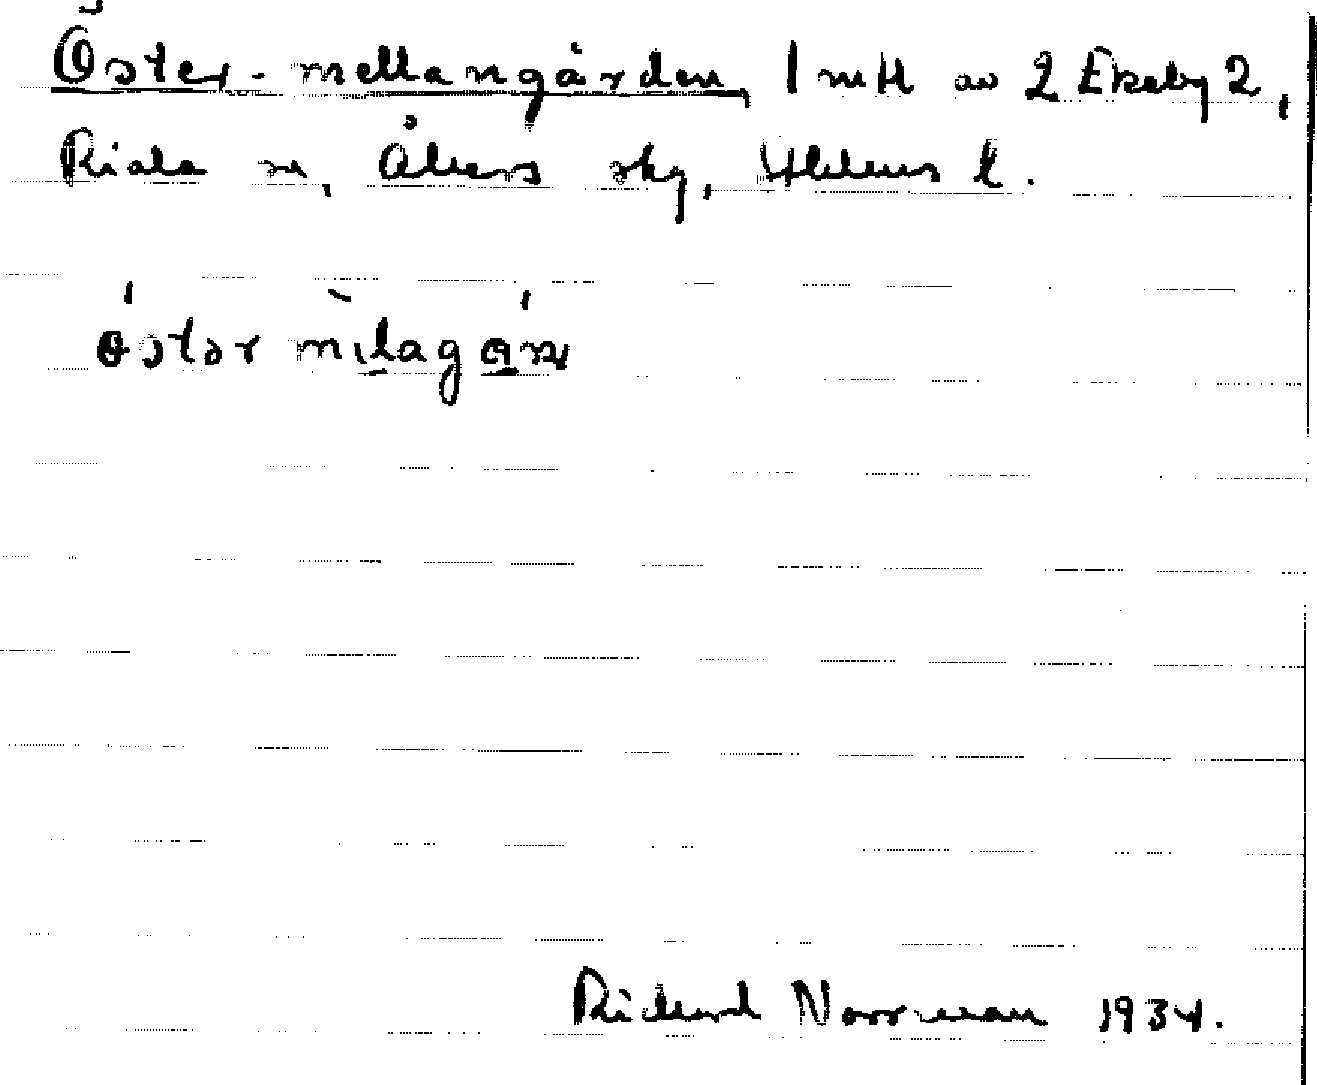 Öster-mellangården, 1 mtl av 2 Ekeby 2,
Riala sn, Åkers skg, Sthlms l.
östər milagɑ̊ṇ
Richard Norrman 1934.